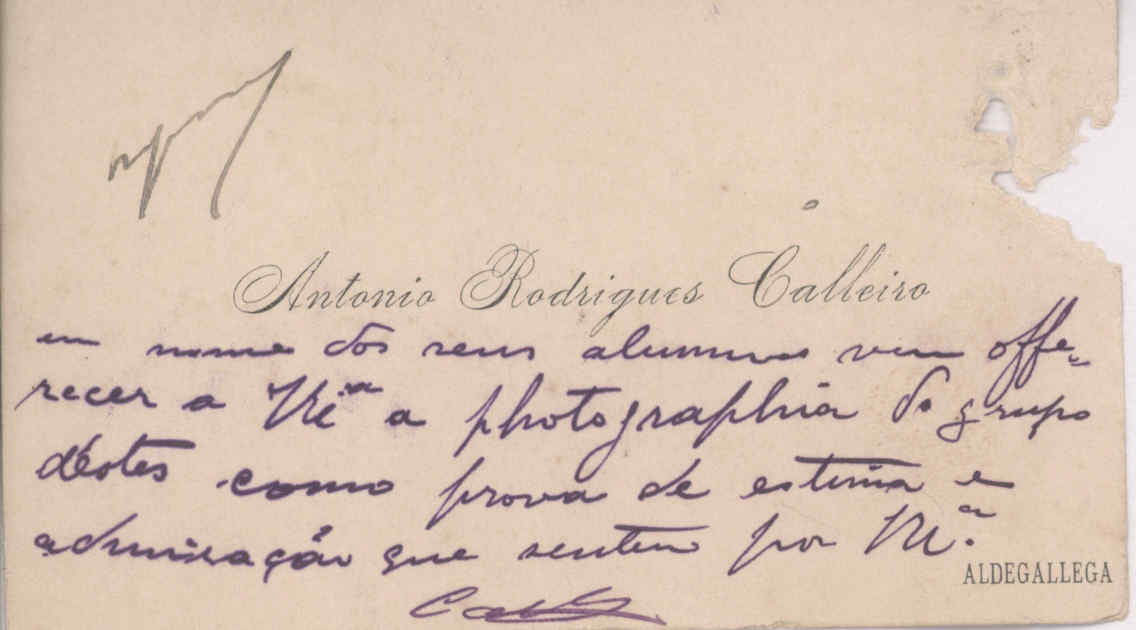 Antonio Rodrigues Calleiro
em nome dos seus alumnos vem offe-
recer a a photographia do grupo
d'estes como prova de estima e
admiração que sentem por
ALDEGALLEGA